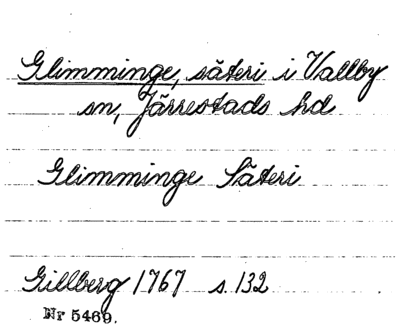 Glimminge, säteri i Vallby
sn, Järrestads hd
Glimminge Säteri
Gillberg 1767 s. 132
Nr 5469.